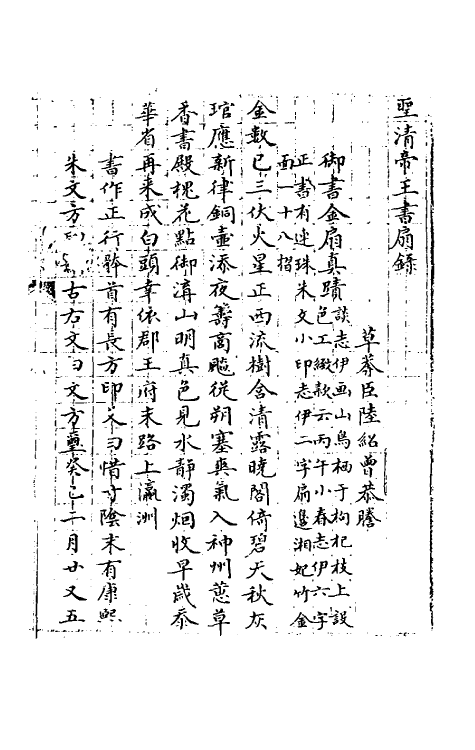 聖清帝王書扇錄
草莽臣陸紹曾恭謄
御書金扇真蹟談志伊画山鳥栖于枸杞枝上設
色工緻款云丙午小春志伊六字
正書有迷珠朱文小印志伊二字扇邊湘妃竹金
面一十八摺
金數已三伏火星正西流樹含清露曉閣倚碧天秋灰
琯應新律銅壺添夜籌商飈從朔塞爽氣入神州蕙草
香書殿槐花點御溝山明真色見水靜濁烟收早歲忝
華省再來成白頭幸依郡王府末路上瀛洲
書作正行幹首有長方印文曰惜寸陰末有康熙
朱文方印 古右文曰文方璽癸巳二月廿又五